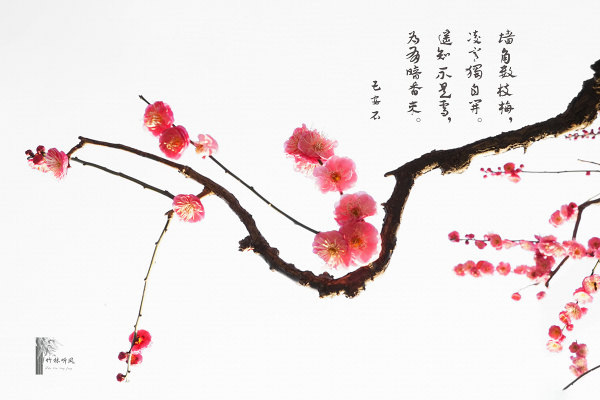 墙角数枝梅，
凌寒獨自开。
遥知不是雪，
为有暗香来。
王安石
竹林听风